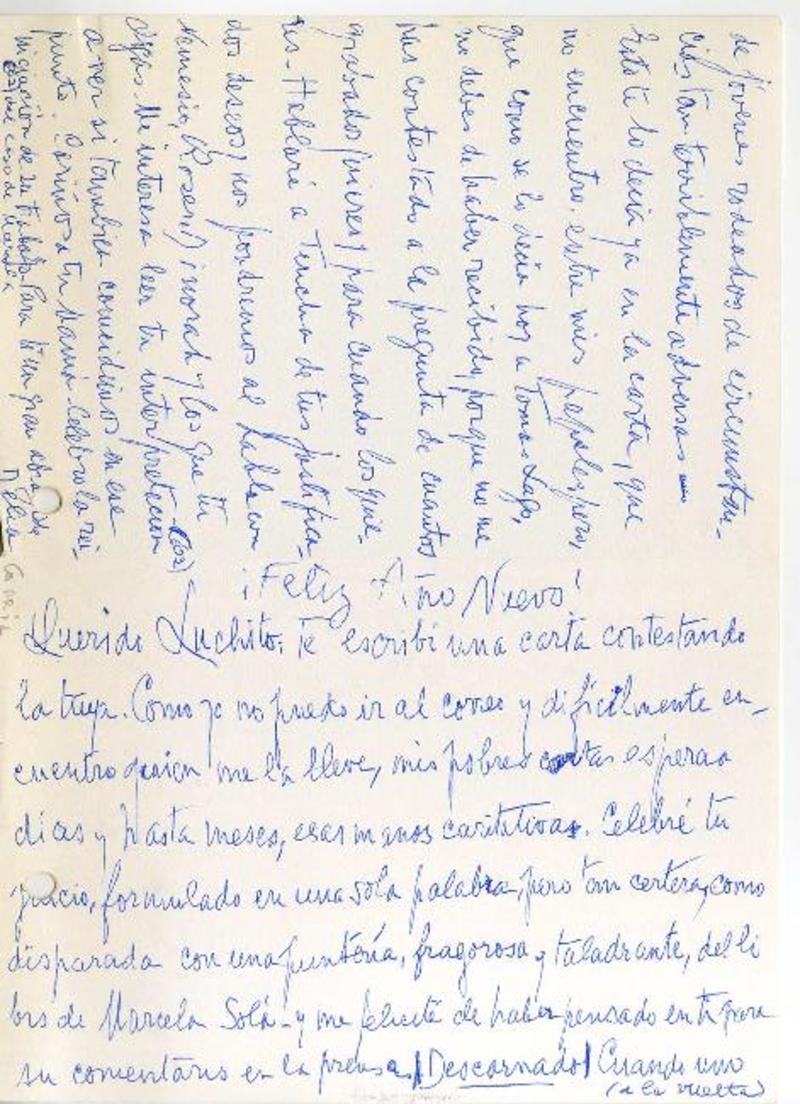 ¡Feliz Año Nuevo!
Querido Luchito: Te escribí una carta contestando
la tuya. Como yo no puedo ir al correo y dificilmente en-
cuentro quien me la lleve, mis pobres cartas esperan
días y hasta meses, esas manos caritativas. Celebré tu
juicio, formulado en una sola palabra, pero tan certera, como
disparada con una puntería, fragorosa y taladrante, del li
bro de Marcela Solá - y me felicité de haber pensado en ti para
su comentario en la prensa. ¡Descarnado! Cuando uno
(a la vuelta)
de jóvenes rodeados de circunstan-
cias tan terriblemente adversas -
Esto te lo decía ya en la carta, que
no encuentro entre mis papeles, pero,
que como se lo decía hoy a Tomás Lago,
no debes de haber recibido, porque no me
has contestado a la pregunta de cuantos
grabados quieres y para cuando los quie-
res - Hablaré a Tencha de tus justifica-
dos deseos y nos pondremos al habla con
Nemesio, Roser y los que tu
digas. Me interesa leer tu interpretación (02)
a ver si tambien coincidimos en ese
punto. Cariños a tu mamá. Celebro la rei-
niciación de su trabajo. Para ti un gran abrazo de
Delia
(02) del caso de Marcela